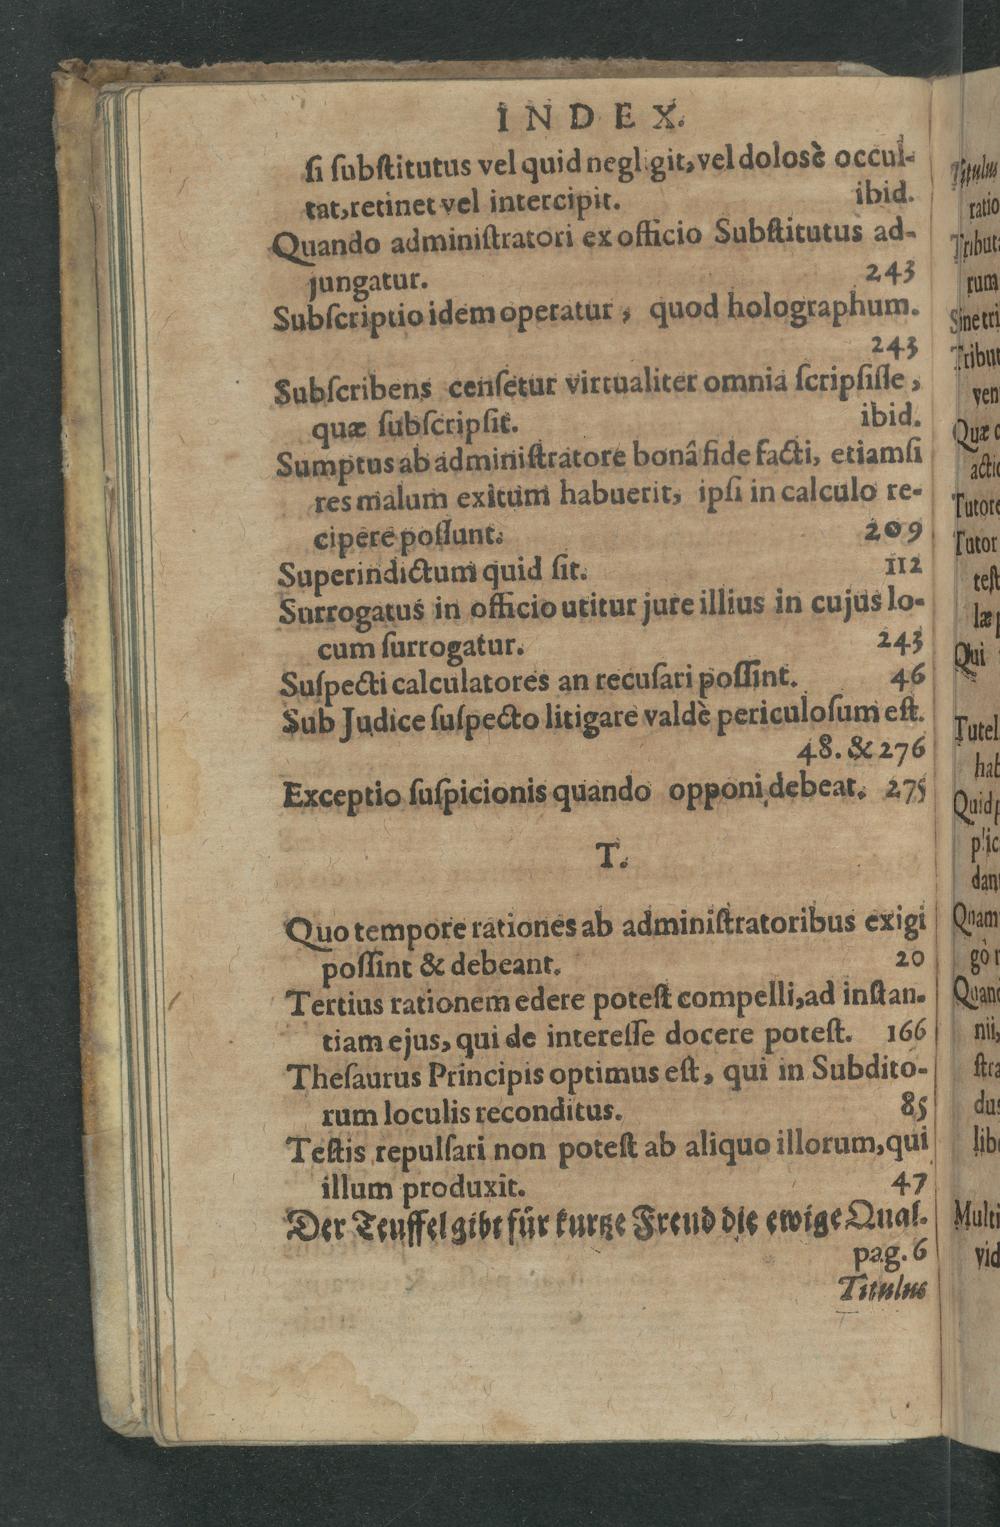 INDEX.
ſi ſubſtitutus vel quid negligit, vel dolosè occul-
tat, retinet vel intercipit. ibid.
Quando adminiſtratori ex officio Subſtitutus ad-
jungatur. 243
Subſcriptio idem operatur, quod holographum.
243
Subſcribens cenſetur virtualiter omnia ſcripſiſſe,
quæ ſubſcripſit. ibid.
Sumptus ab adminiſtratore bonâ fide facti, etiamſi
res malum exitum habuerit, ipſi in calculo re-
cipere poſſunt. 209
Superindictum quid ſit. 112
Surrogatus in officio utitur jure illius in cujus lo-
cum ſurrogatur. 243
Suſpecti calculatores an recuſari poſſint. 46
Sub Judice ſuſpecto litigare valdè periculoſum eſt.
48. & 276
Exceptio ſuſpicionis quando opponi debeat. 275
T.
Quo tempore rationes ab adminiſtratoribus exigi
poſſint & debeant. 20
Tertius rationem edere poteſt compelli, ad inſtan-
tiam ejus, qui de intereſſe docere poteſt. 166
Theſaurus Principis optimus eſt, qui in Subdito-
rum loculis reconditus. 85
Teſtis repulſari non poteſt ab aliquo illorum, qui
illum produxit. 47
Der Teuffel gibt für kurtze Freud die ewige Qual.
pag. 6
Titulus
Titulus
ratio
Tribut
rum
Sine tri
Tribut
ven
Quæ c
actio
Tutore
Tutor
teſt
læ p
Qui
Tutel
hab
Quid p
plic
dan
Quam
gò r
Quand
nii,
ſtra
dus
libe
Multi
vid